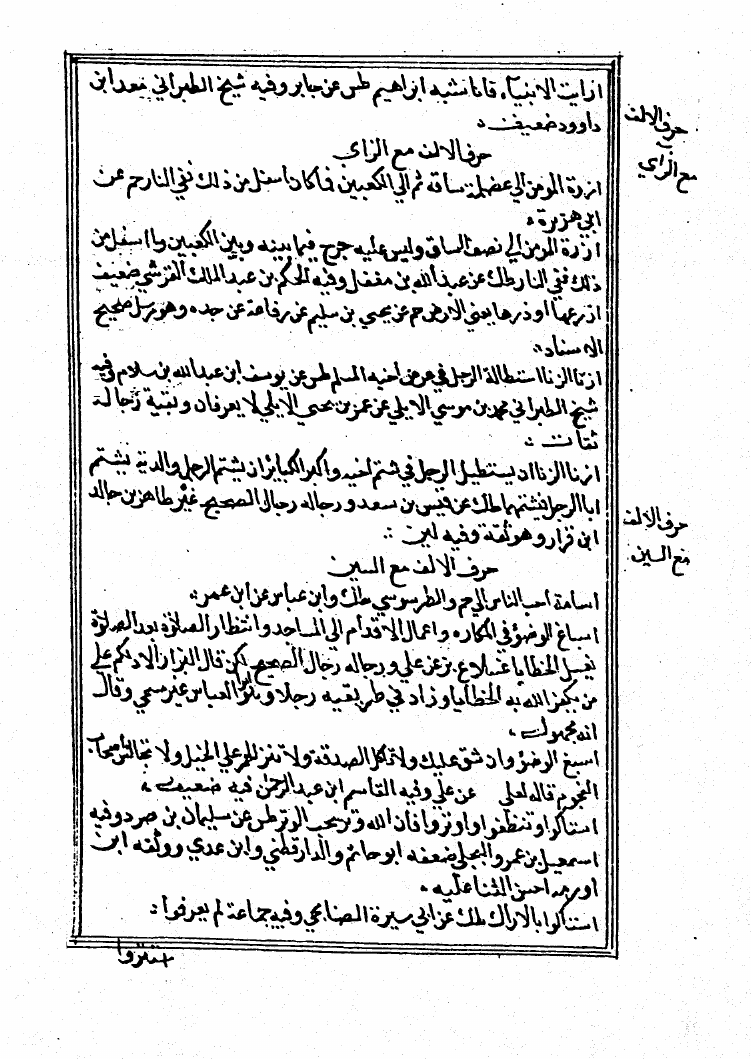 ارايت الانبياء فانا نشبه ابراهيم طس عن جابر وفيه شيخ الطبراني ابن
داوود ضعيف
حرف الالف مع الزاي
حرف الالف
مع الزاي
ازرة المومن الي عضلة ساقه ثم الي الكعبين فما كان اسفل من ذلك ففي النار حم عن
ابي هريرة
ازرة المومن الي نصف الساق وليس عليه حرج فيما بينه وبين الكعبين وما اسفل من
ذلك ففي النار طك عن عبد الله بن مغفل وفيه الحكم بن عبد الملك القرشي ضعيف
ازرعها او ذرها يعني الارض حم عن يحيي بن سليم عن رفاعة عن جده وهو مرسل صحيح
الاسناد
ازنا الزنا استطالة الرجل في عرض اخيه المسلم طس عن يوسف ابن عبد الله بن سلام وفيه
شيخ الطبراني محمد بن موسي الايلي عن عمر بن يحيي الايلي لا يعرفان وبقية رجاله
ثقات
ازنا الزنا ان يستطيل الرجل في شتم اخيه واكبر الكبائر ان يشتم الرجل والديه يشتم
ابا الرجل فيشتمهما طك عن قيس بن سعد ورجاله رجال الصحيح غير طاهر بن خالد
ابن نزار وهو ثقة وفيه لين
حرف الالف مع السين
حرف الالف
مع السين
اسامة احب الناس الي حم والطرسوسي طك وابن عباس عن ابن عمر
اسباغ الوضوء في المكاره واعمال الاقدام الي المساجد وانتظار الصلاة بعد الصلاة
يغسل الخطايا غسلا ع بز عن علي ورجاله رجال الصحيح لكن قال البزار الا ادلكم علي
من يكفر الله به الخطايا وزاد في طريقيه رجلا وهو ابو العباس غير مسمي وقال
انه مجهول
اسبغ الوضوء وان شق عليك ولا تاكل الصدقة ولا تنز الحمر علي الخيل ولا تجالس اصحاب
النجوم قاله لعلي عن علي وفيه القاسم ابن عبد الرحمن فيه ضعيف
استاكوا وتنظفوا واوتروا فان الله وتر يحب الوتر طس عن سليمان بن صرد وفيه
اسمعيل بن عمرو البجلي ضعفه ابو حاتم والدارقطني وابن عدي ووثقه ابن
احسن الثنا عليه
استاكوا بالاراك طك عن ابي سيرة وفيه جماعة لم يعرفوا